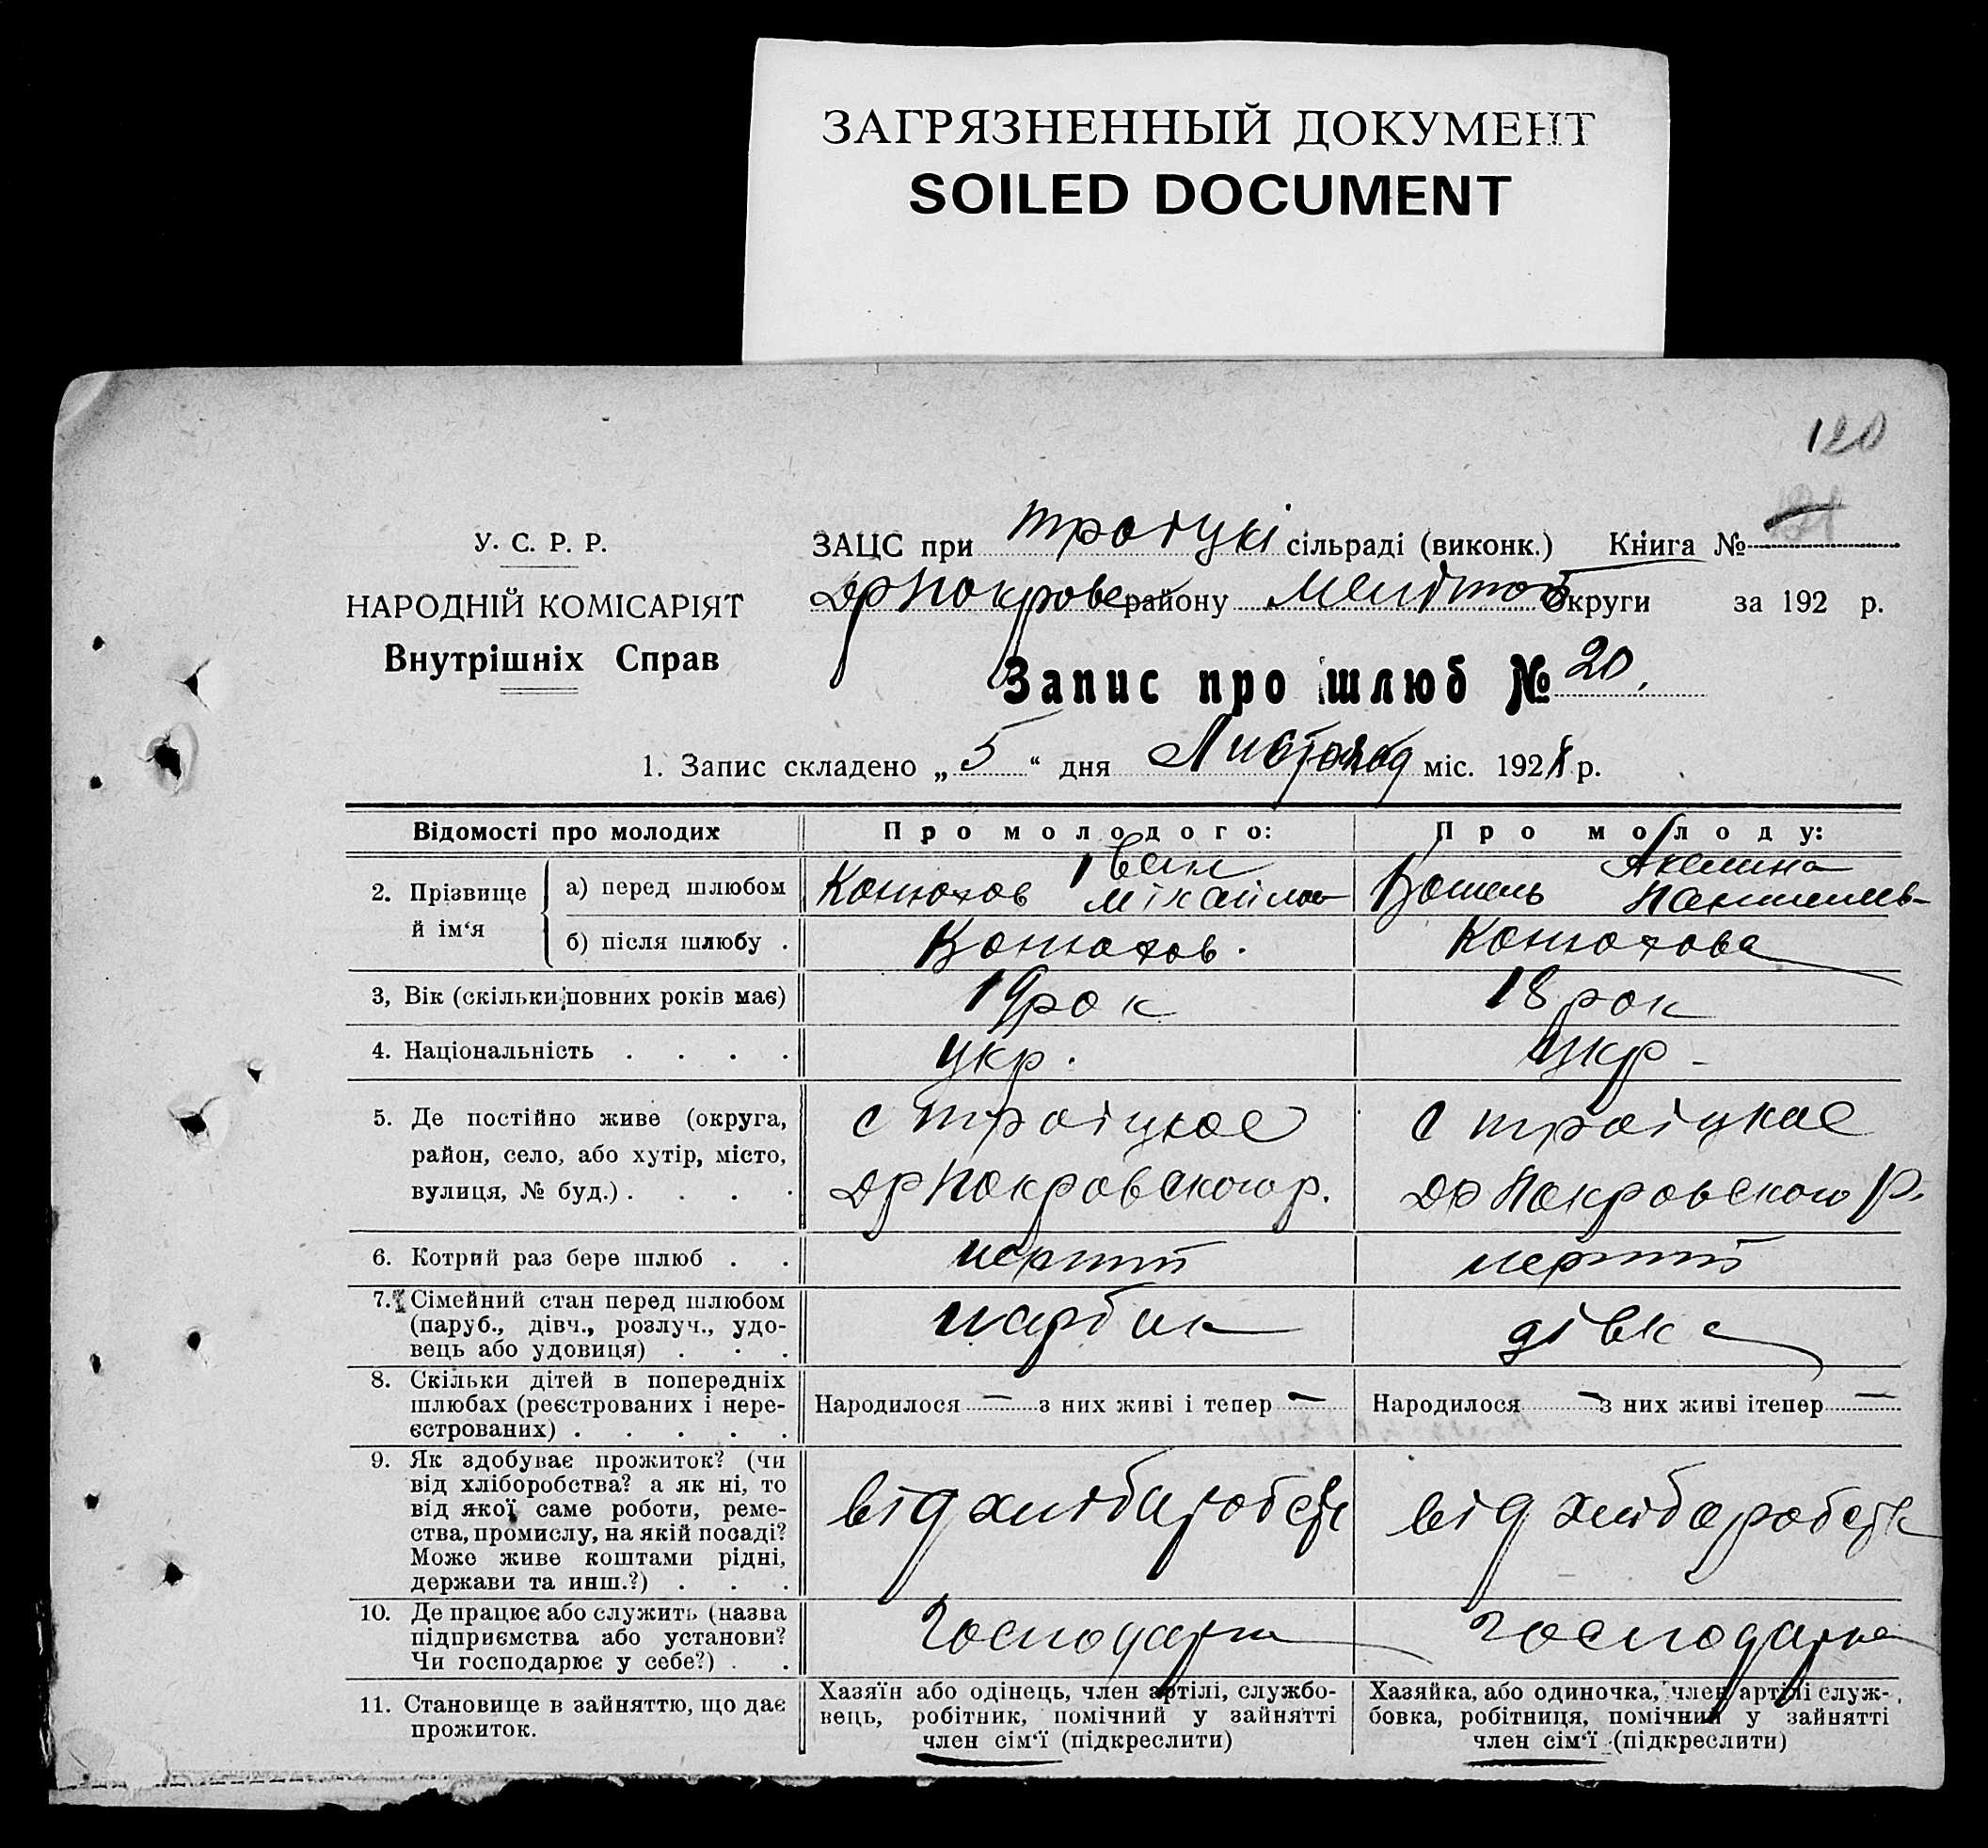 ЗАГРЯЗНЕННЫЙ ДОКУМЕНТ
SOILED DOCUMENT
120
У. С. Р. Р.
НАРОДНІЙ КОМІСАРІЯТ
Внутрішніх Справ
ЗАЦС при троіцкі сільраді (виконк.) Книга №
района округи за 192 р.
Запис про шлюб № 20.
1. Запис складено „ 5 “ дня Листопад міс. 192 р.
Відомості про молодих
Про молодого:
Про молоду:
2. Прізвище й ім‘я
а) перед шлюбом
Конюхов Іван
Міхайлов
Кошель Акелина
б) після шлюбу .
Конюхов.
Конюхова
3, Вік (скільки повних років має)
19 рок
18 рок
4. Національність . . . .
Укр.
Укр -
5. Де постійно живе (округа,
район, село, або хутір, місто,
вулиця, № буд.) . . . .
с троіцкое
Др Покровскогор.
с троіцкое
Др Покровского р.
6. Котрий раз бере шлюб . .
перший
перший
7. Сімейний стан перед шлюбом
(паруб., дівч., розлуч., удо-
вець або удовиця) . . .
парбик
дівка
8. Скільки дітей в попередніх
шлюбах (реєстрованих і нере-
єстрованих) . . . . .
Народилося — з них живі і тепер —
Народилося — з них живі ітепер —
9. Як здобуває прожиток? (чи
від хліборобства? а як ні, то
від якої саме роботи, реме-
ства, промислу, на якій посаді?
Може живе коштами рідні,
держави та инш.?) . . .
від хлібаробств
від хлібаробств
10. Де працює або служить (назва
підприємства або установи?
Чи господарює у себе?) . .
Господарка
господарка
11. Становище в зайняттю, що дає
прожиток.
Хазяїн або одінець, член артілі, службо-
вець, робітник, помічний у зайнятті
член сім‘ї (підкреслити)
Хазяйка, або одиночка, член артілі служ-
бовка, робітниця, помічний у зайнятті
член сім‘ї (підкреслити)